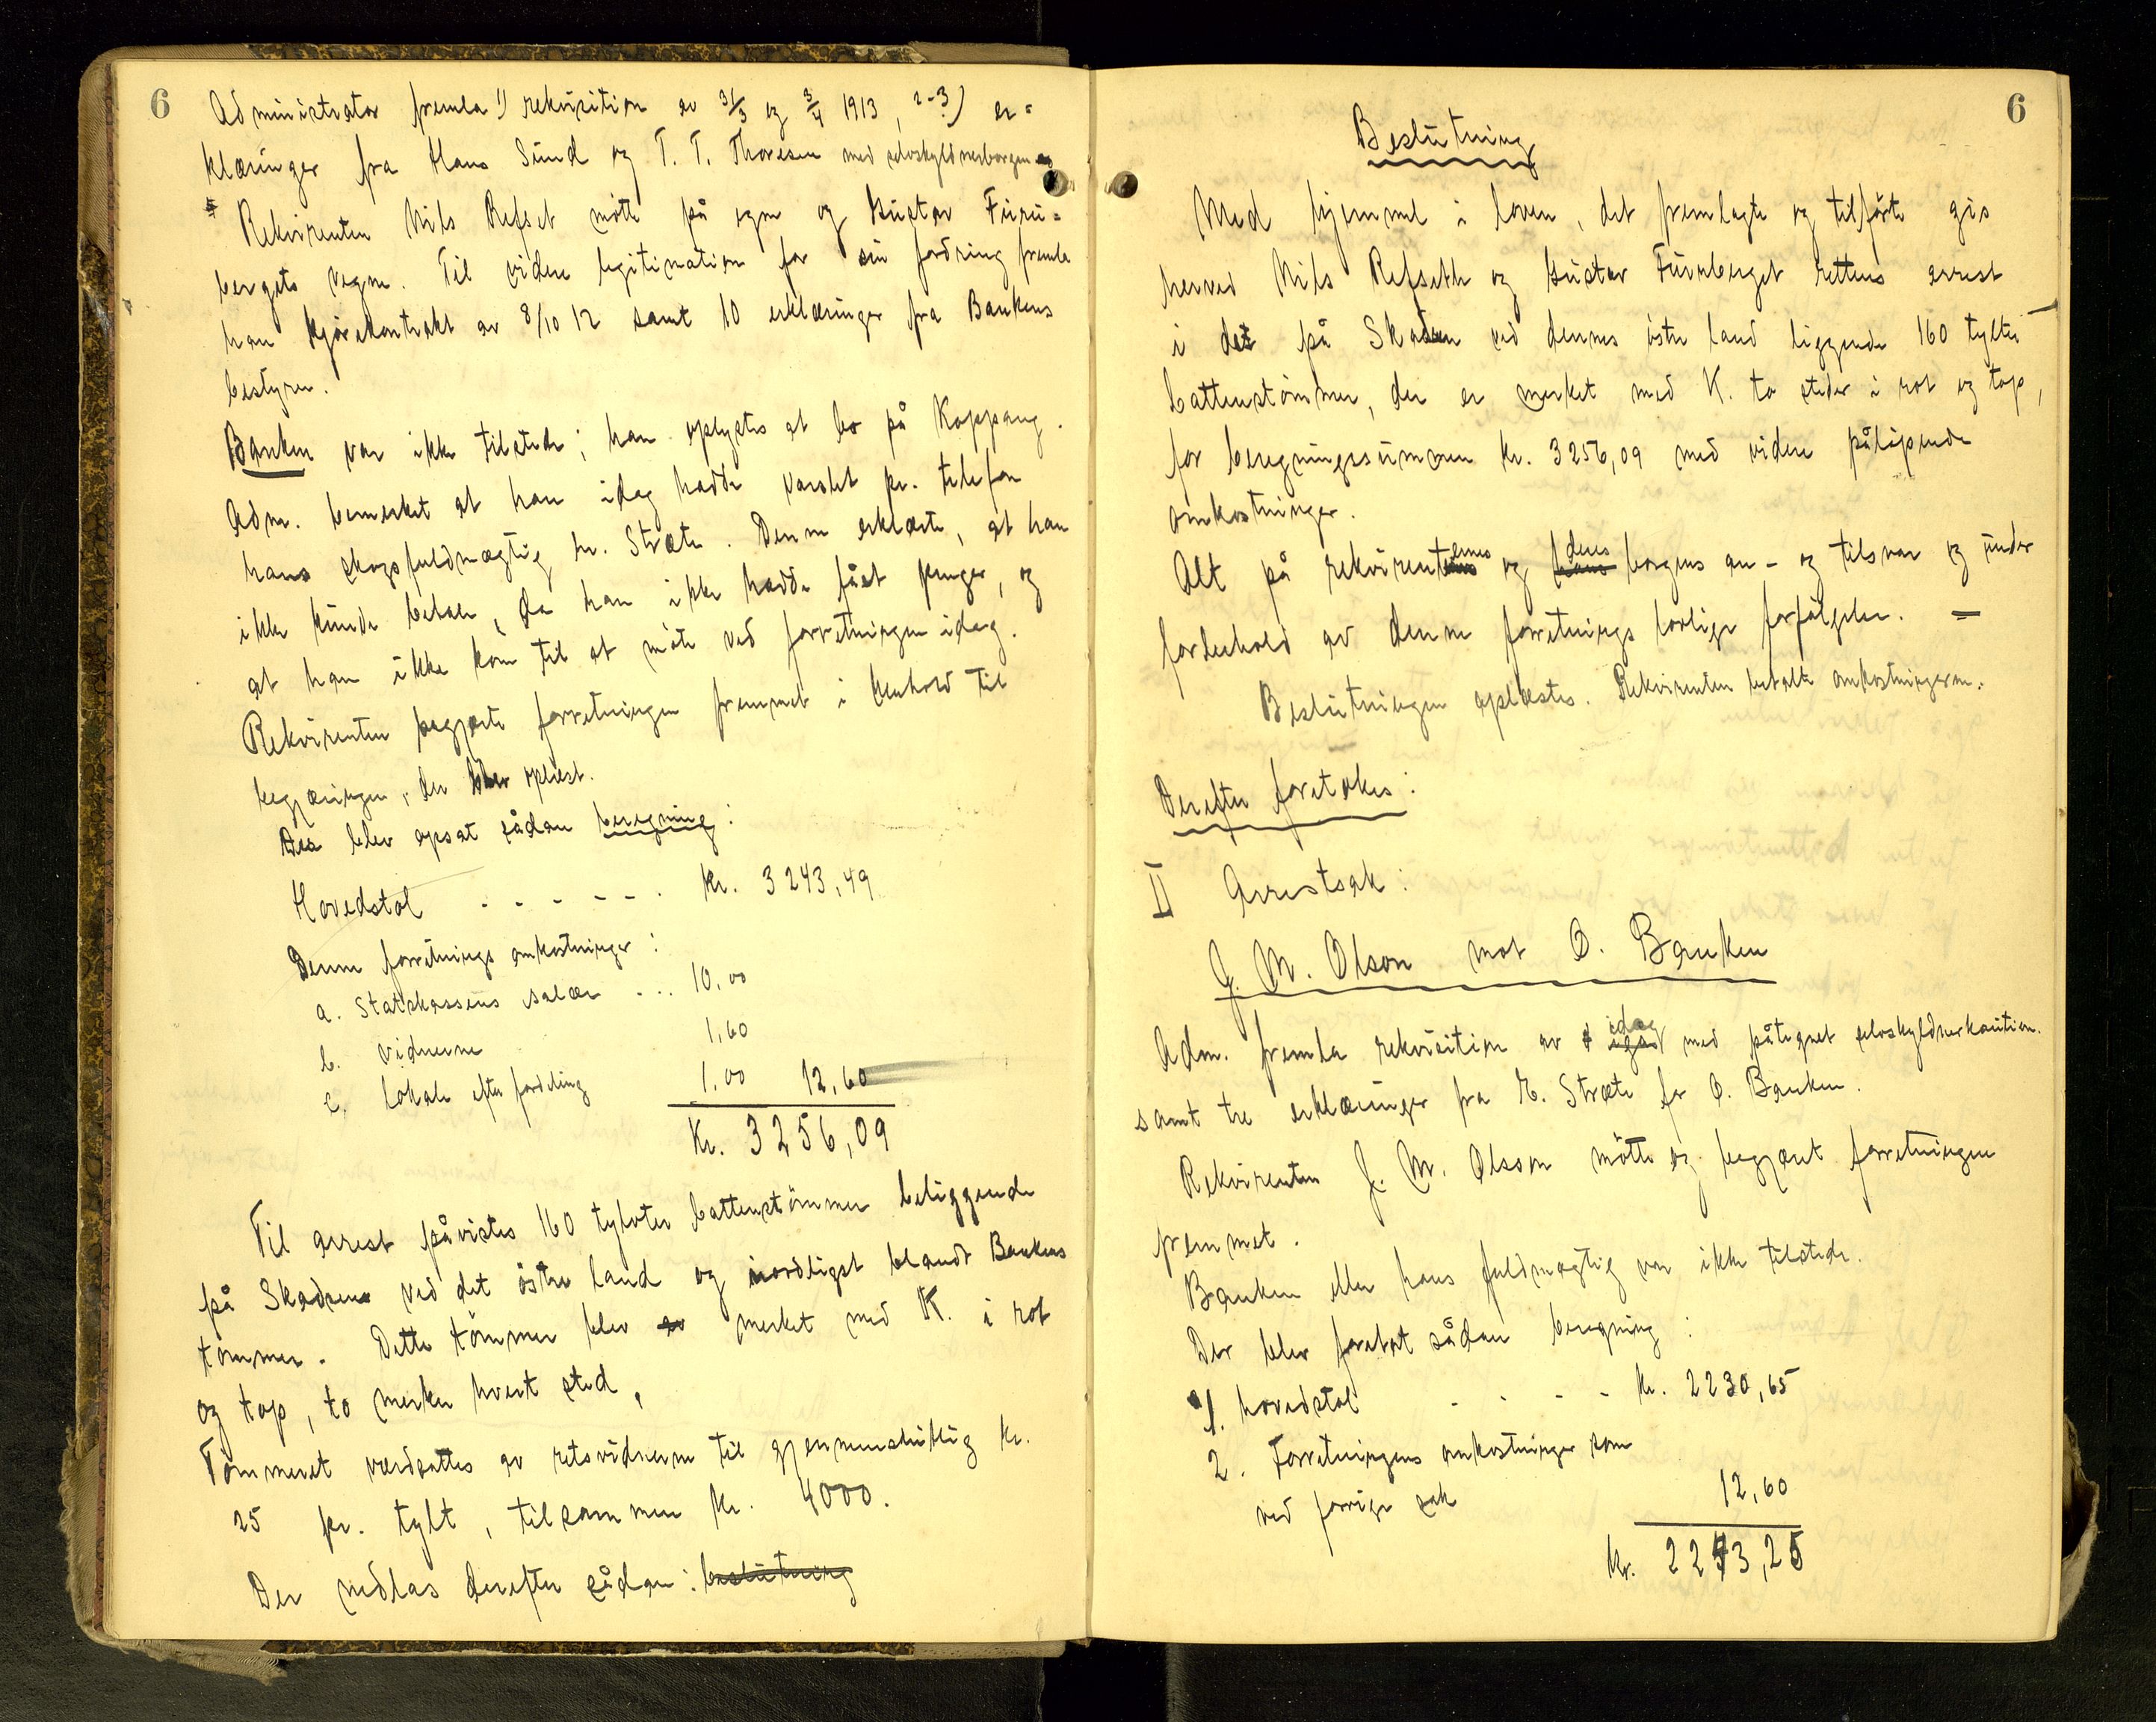 6
Administrator fremla 1) rekvisition av 31/3 og 3/4 1913, 2-3) er=
klæringer fra Hans Sund og T. T. Thoresen med selvskyldnerborgen
Rekvirenten Nils Refset møtte på egne og Gustav Furu=
bergets vegne. Til videre legitimation for sin fordring fremla
han kjørekontrakt av 8/10 12 samt 10 erklæringer fra Bankens
bestyrer.
Banken var ikke tilstede; han oplystes at bo på Koppang.
Adm. bemerket at han idag hadde varslet pr. telefon
hans skogsfuldmægtig hr. Stræte. Denne erklærte, at han
ikke kunde betale, da han ikke hadde fåt penger, og
at han ikke kom til at møte ved forretningen idag.
Rekvirenten begjærte forretningen fremmet i henhold til
begjæringen, der blev oplæst.
Der blev opsat sådan beregning:
Hovedstol - - - - - . Kr. 3243,49
Denne forretnings omkostninger:
a. Statskassens salær ... 10,00
b. Vidnerne 1,60
c. Lokale efter fordeling 1,00 12,60
Kr. 3256,09
Til arrest påvistes 160 tylvter battenstømmer beliggende
på Skadsen ved det østre land og nordligst blandt Bankens
tømmer. Dette tømmer blev merket med K. i rot
og top, to merker hvert sted,
Tømmeret værdsattes av retsvidnerne til gjennemsnitlig kr.
25 pr. tylt, tilsammen kr. 4000.
Der nedlas derefter sådan: beslutning
6
Beslutning
Med hjemmel i loven, det fremlagte og tilførte gis
herved Nils Refseth og Gustav Furuberget rettens arrest
i det på Skadsen ved dennes østre land liggende 160 tylter
battenstømmer, der er merket med K. to steder i rot og top,
for beregningssummen kr. 3256,09 med videre påløpende
omkostninger.
Alt på rekvirenternes og hans deres borgens an- og tilsvar og under
forbehold av denne forretnings lovlige forfølgelse. =
Beslutningen oplæstes. Rekvirenten betalte omkostningerne.
Derefter foretokes:
II Arrestsak:
J. M. Olson mot O. Banken
Adm. fremla rekvisition av idag med påtegnet selvskyldnerkaution.
samt tre erklæringer fra E. Stræte for O. Banken.
Rekvirenten J. M. Olsson møtte og begjæret forretningen
fremmet.
Banken eller hans fuldmægtig var ikke tilstede.
Der blev foretat sådan beregning:
1. hovedstol - - - - Kr. 2230,65
2. Forretningens omkostninger som
ved forrige sak 12,60
Kr. 2243,25